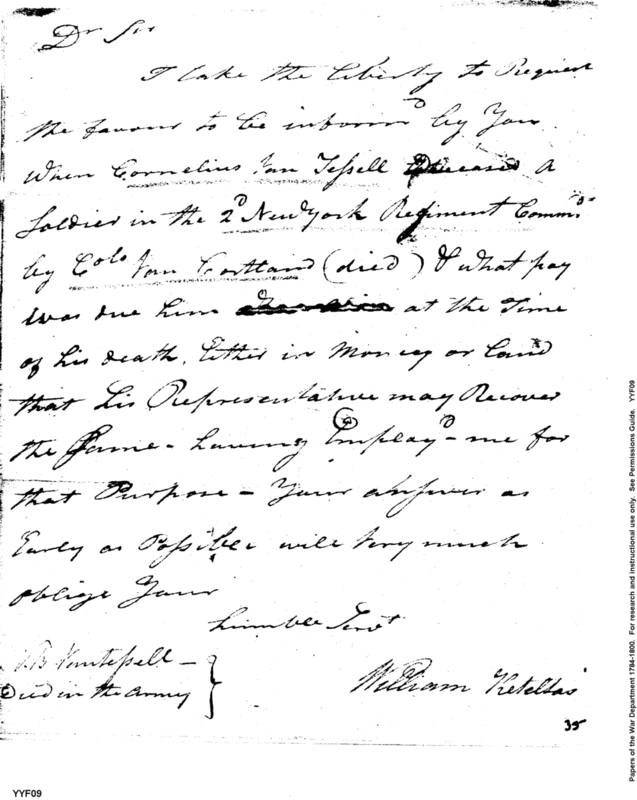 Dr Sir
I take the liberty to Request
the favour to be inform'd by You
When Cornelius Van Tessell Deceased A
Soldier in the 2d New York Regiment Commd
by Colo Van Cortland (died) & what pay
was due him at the Time
of his death, Either in Money or Land
that his Representative may Recover
the Same - having Employ'd - me for
that Purpose - Your answer as
Early as Possible will Very much
oblige Your
humble Servt
NB Vantessell -
Died in the Army
William Keteltas
35
YYF09
Papers of the War Department 1784-1800. For research and instructional use only. See Permissions Guide. YYF09